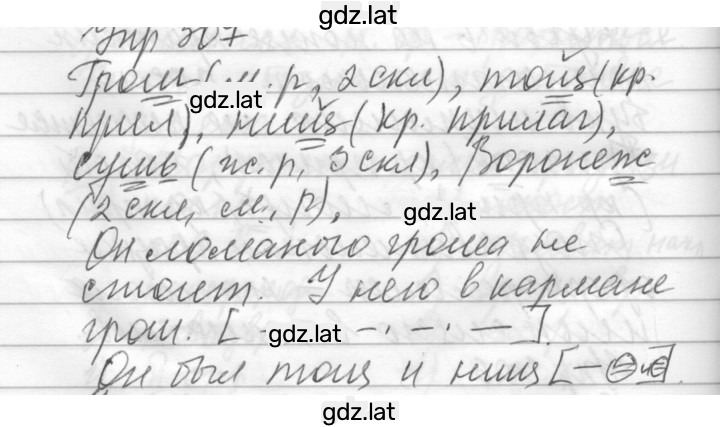 gdz.lat
Упр 307
Грош (м. р, 2 скл), тощ (кр.
gdz.lat
прил), нищ (кр. прилаг),
сушь (ж. р, 3 скл), Воронеж
(2 скл, м., р),
gdz.lat
Он ломаного гроша не
стоит. У него в кармане
грош. [
gdz.lat
— . — . — ].
Он был тощ и нищ [–
gdz.lat